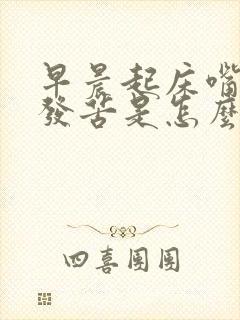 早晨起床嘴
發苦是怎麼
四喜團團